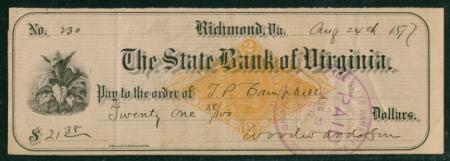 No. 230 Richmond, Va. Aug 24th 1877
The State Bank of Virginia.
Pay to the order of T.P. Campbell
Twenty One 38/100 Dollars.
$ 21 38
PAID